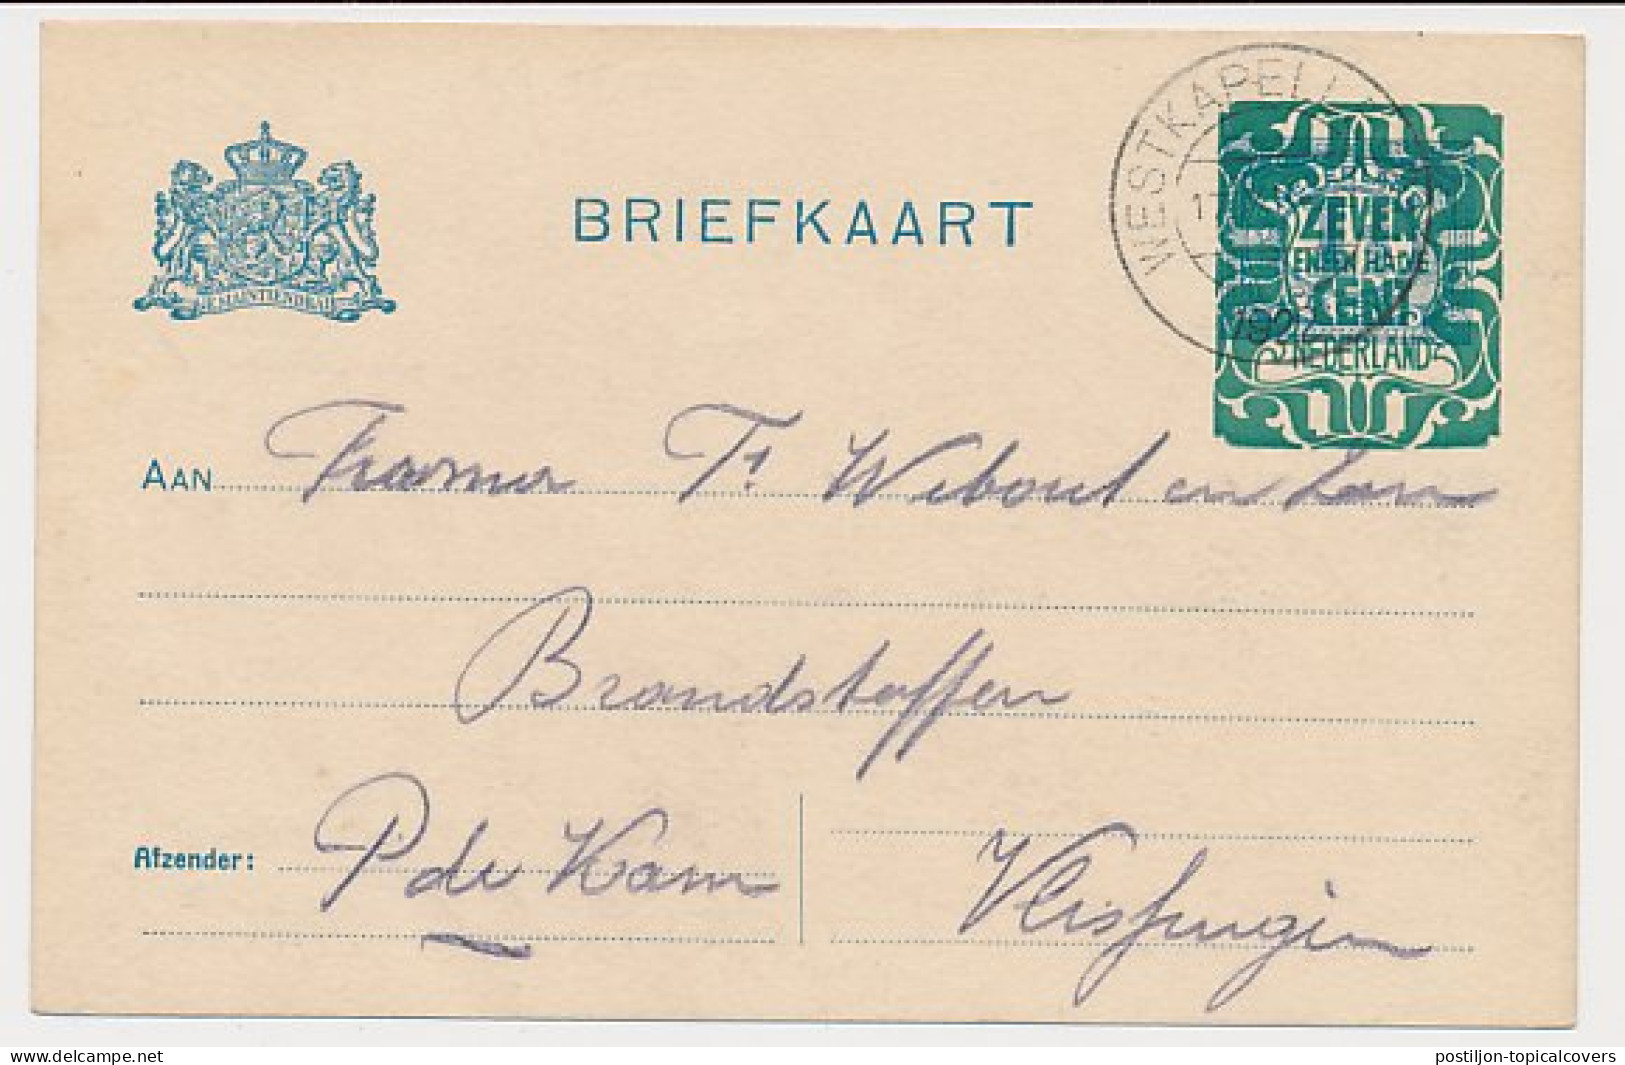 WESTKAPELL
17
1922
JE MAINTIENDRAI
BRIEFKAART
ZEVEN
EN EEN HALVE
CENT
NEDERLAND
AAN Firma T. Wibout en Zoon
Brandstoffen
Afzender: P de Kam
Vlissingen
delcampe.net
postiljon-topicalcovers